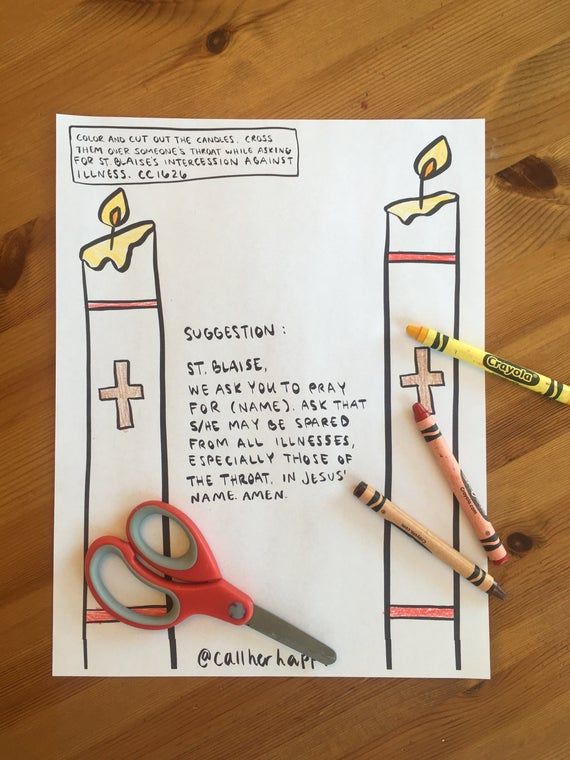 COLOR AND CUT OUT THE CANDLES. CROSS
THEM OVER SOMEONE'S THROAT WHILE ASKING
FOR ST. BLAISE'S INTERCESSION AGAINST
ILLNESS. CC1626
SUGGESTION:
ST. BLAISE,
WE ASK YOU TO PRAY
FOR (NAME). ASK THAT
S/HE MAY BE SPARED
FROM ALL ILLNESSES,
ESPECIALLY THOSE OF
THE THROAT. IN JESUS'
NAME. AMEN.
Crayola
@callherhapp